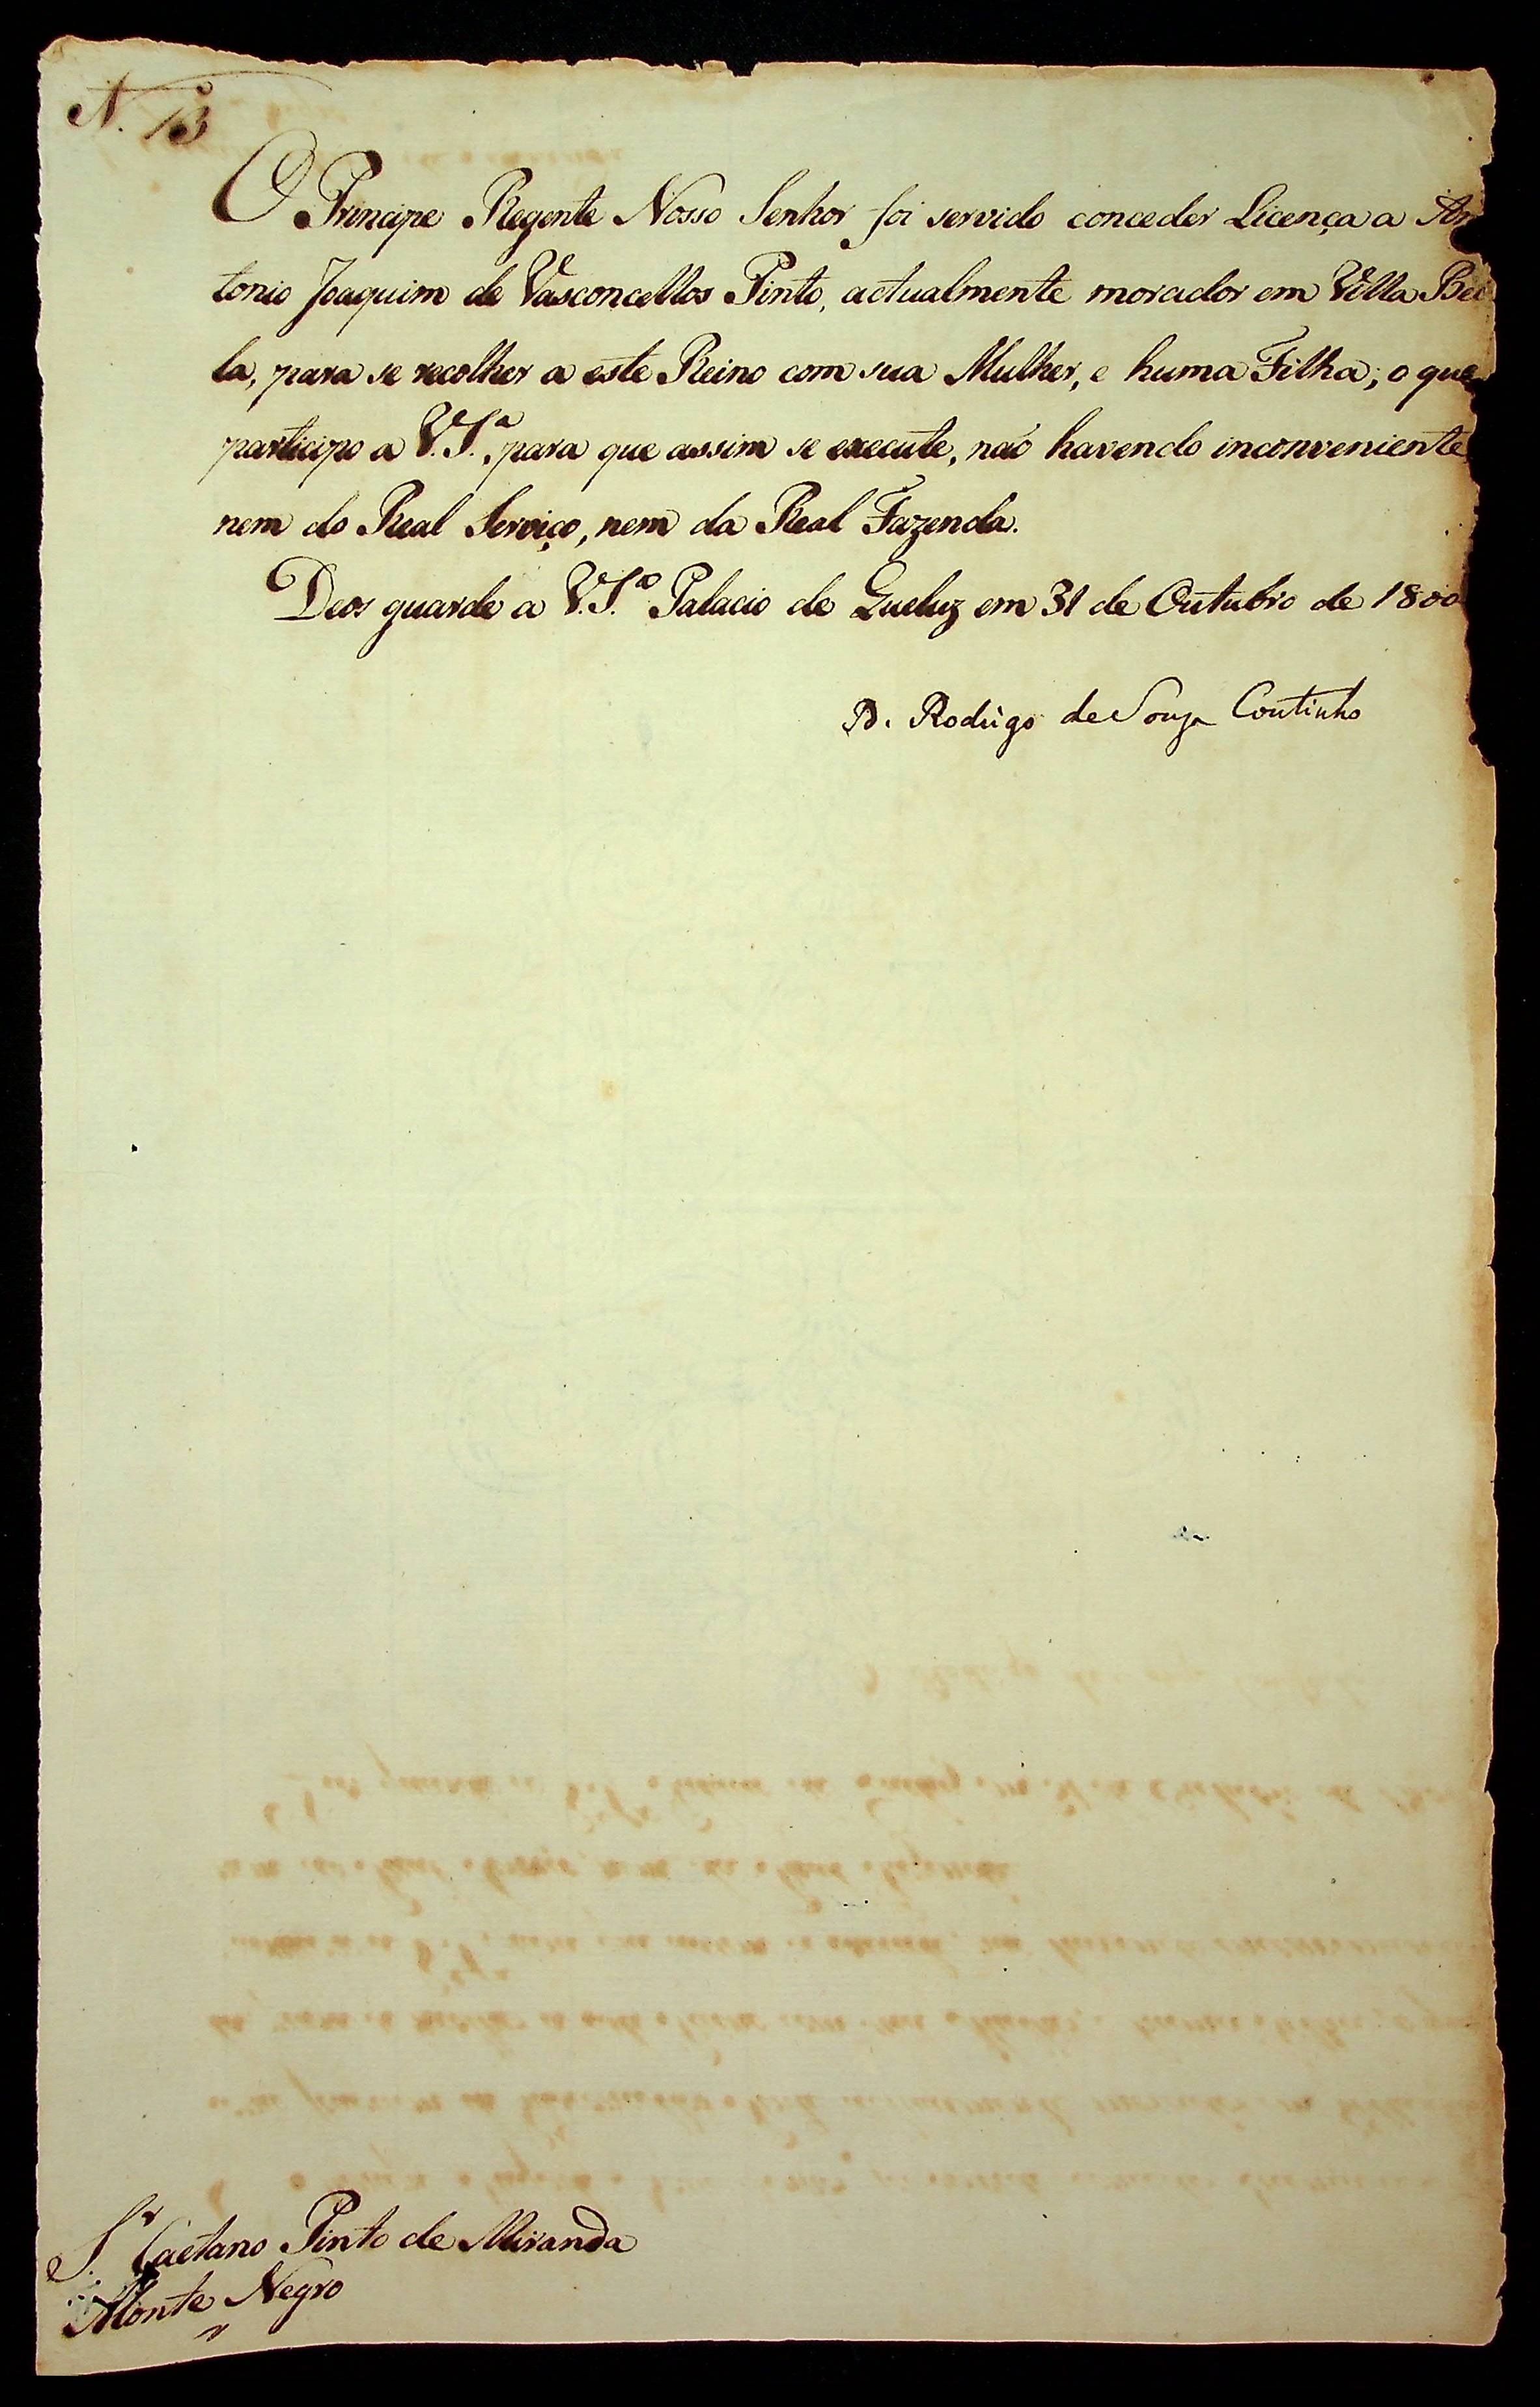 N. 13
O Principe Regente Nosso Senhor foi servido conceder Licença a An
tonio Joaquim de Vasconcellos Pinto, actualmente morador em Villa Bel
la, para se recolher a este Reino com sua Mulher, e huma Filha; o que
participo a V.S.ª, para que assim se execute, naõ havendo inconveniente
nem do Real Serviço, nem da Real Fazenda.
Deos guarde a V.S.ª Palacio de Queluz em 31 de Outubro de 1800
D. Rodrigo de Souza Coutinho
S.r Caetano Pinto de Miranda
Monte Negro